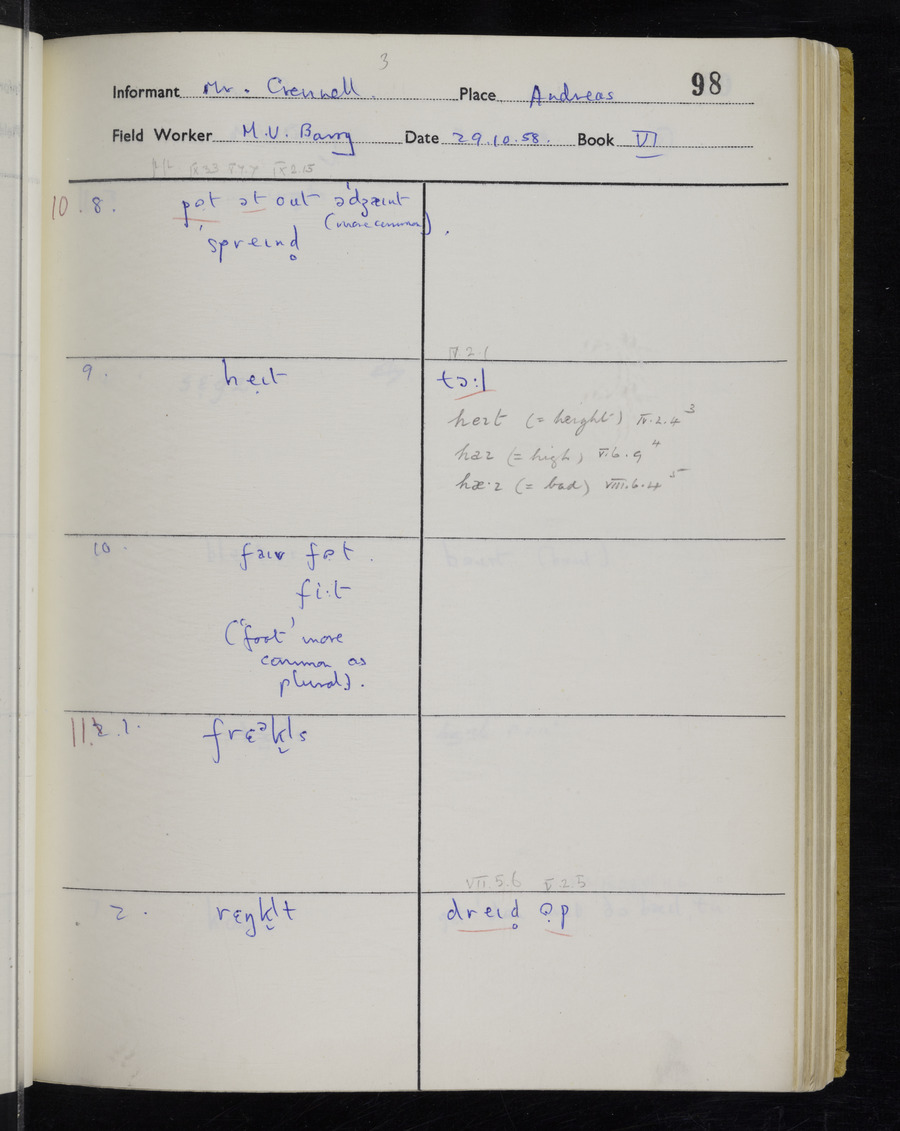 3
Informant Mr. Crennell. Place Andreas 98
Field Worker M.V. Barry Date 29.10.58. Book VI
IX 2.15
10.8. pɵt ət out ədʒæint
(more common).
ˈspreɪnd̥
V 2.1
9. heɪt tɔ:l
heɪt (= height) IV.2.4 3
haɪ (= high) VI.6.9 4
hæ·ɪ (= bad) VIII.6.4 5
10. faɪv fɵt.
fi:t
('foot' more
common as
plural).
11. 1. frɛəkl̩s
VII.5.6 V 2.5
2. rɛŋkl̩t dreɪd̥ ɵp